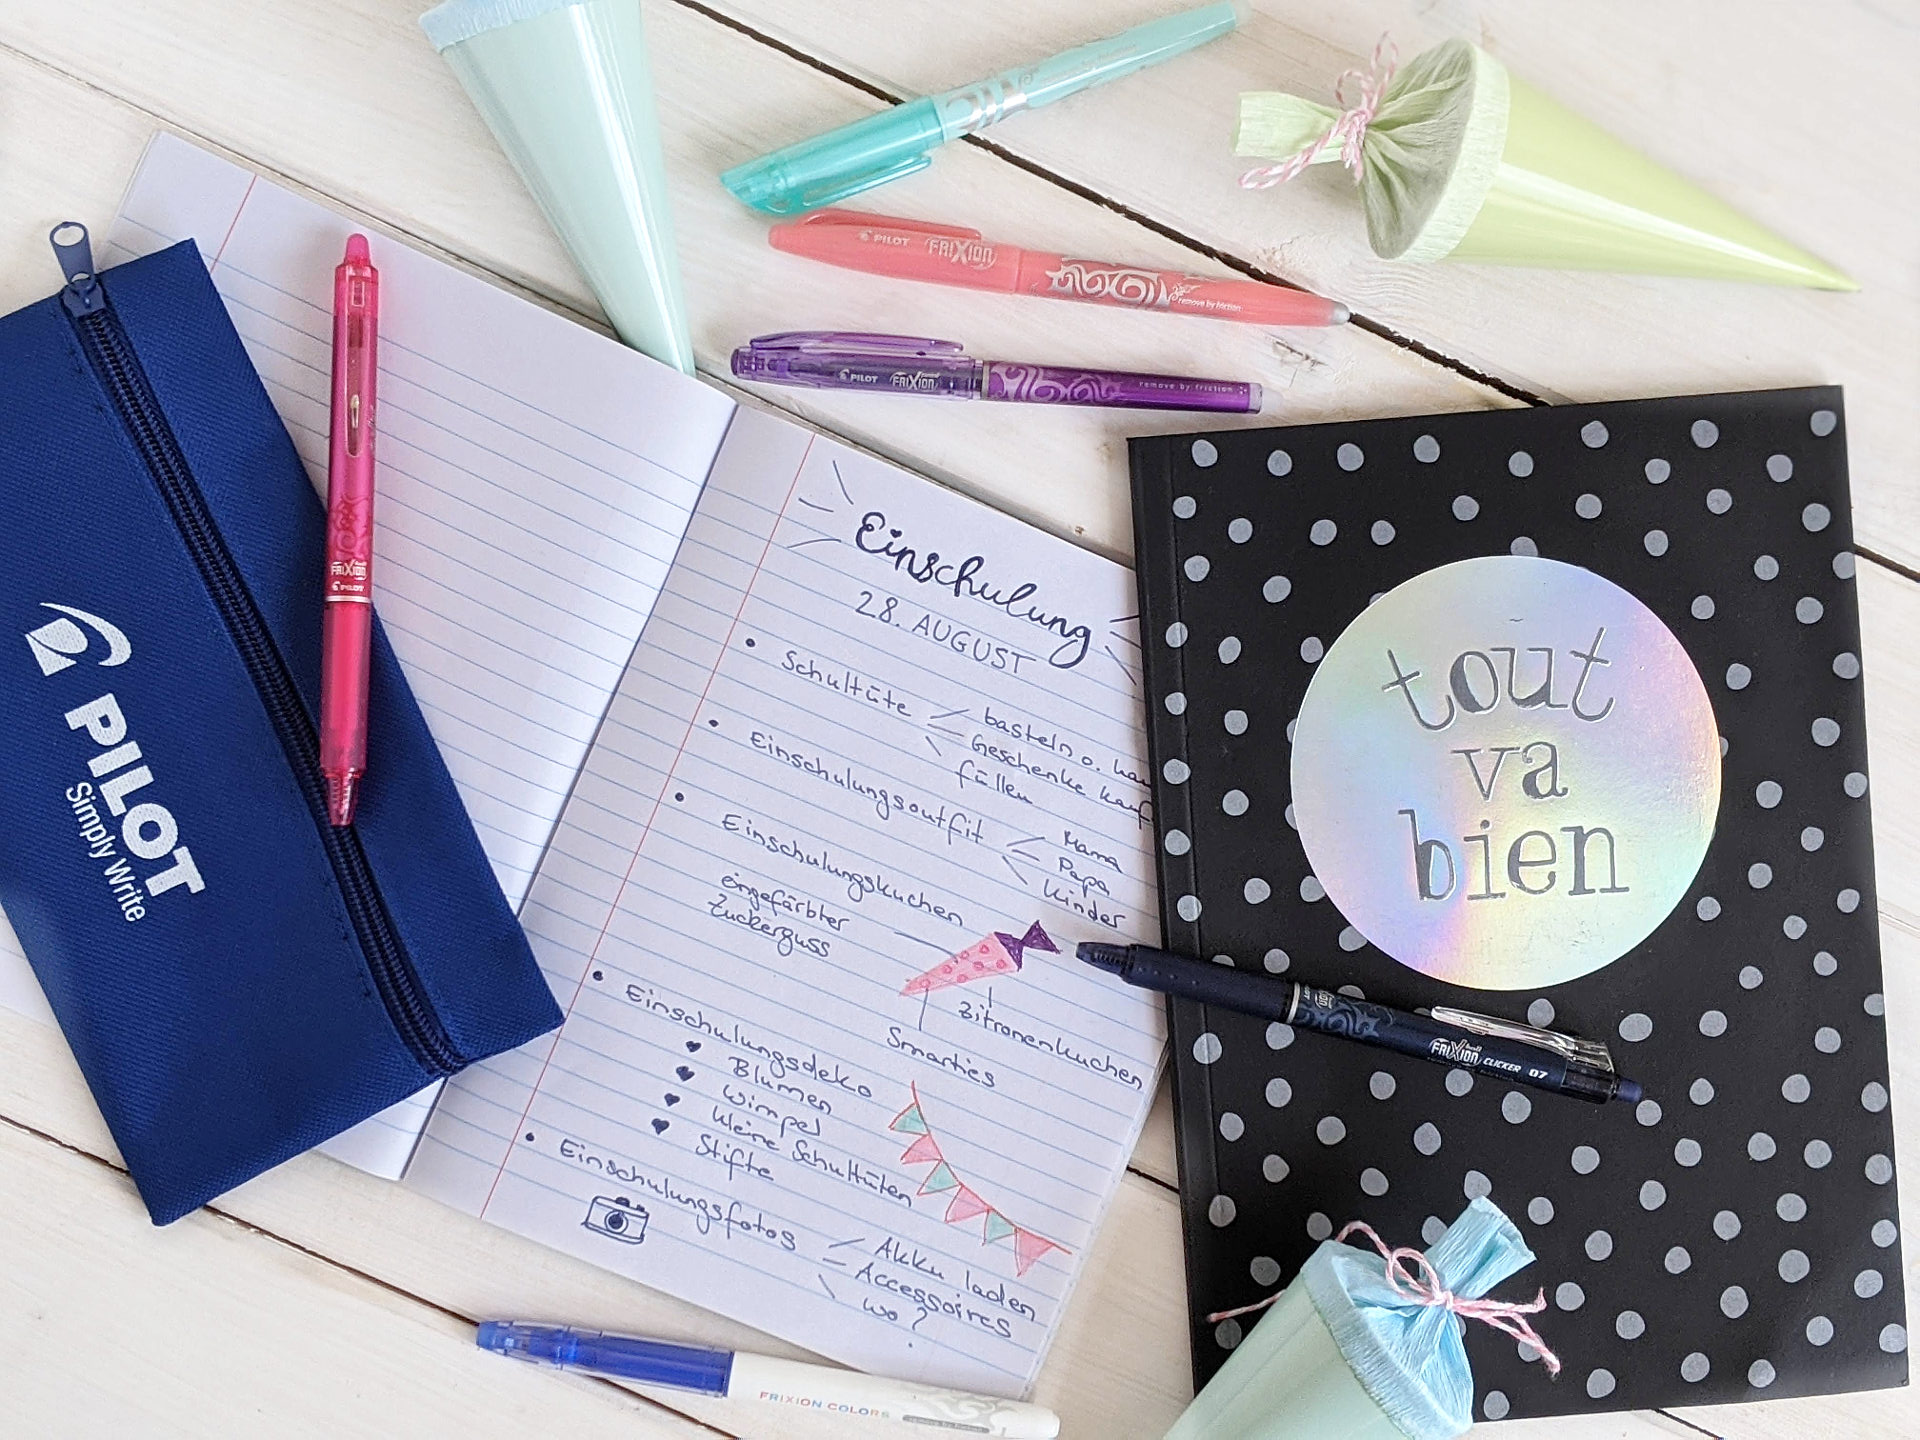 PILOT
Simply Write
FRIXION
PILOT
PILOT FRIXION
remove by friction
PILOT FRIXION
remove by friction
Einschulung
28. AUGUST
• Schultüte
basteln o.
Geschenke
füllen
• Einschulungsoutfit
Mama
Papa
Kinder
• Einschulungskuchen
eingefärbter
Zuckerguss
Zitronenkuchen
Smarties
• Einschulungsdeko
♥ Blumen
♥ Wimpel
♥ kleine Schultüten
♥ Stifte
• Einschulungsfotos
Akku laden
Accessoires
wo?
tout
va
bien
FRIXION CLICKER 07
FRIXION COLORS
remove by friction